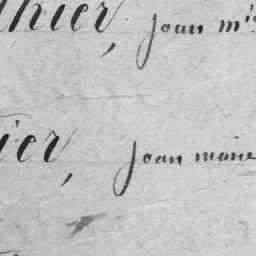 thier, Jean m
ier, Jean marie